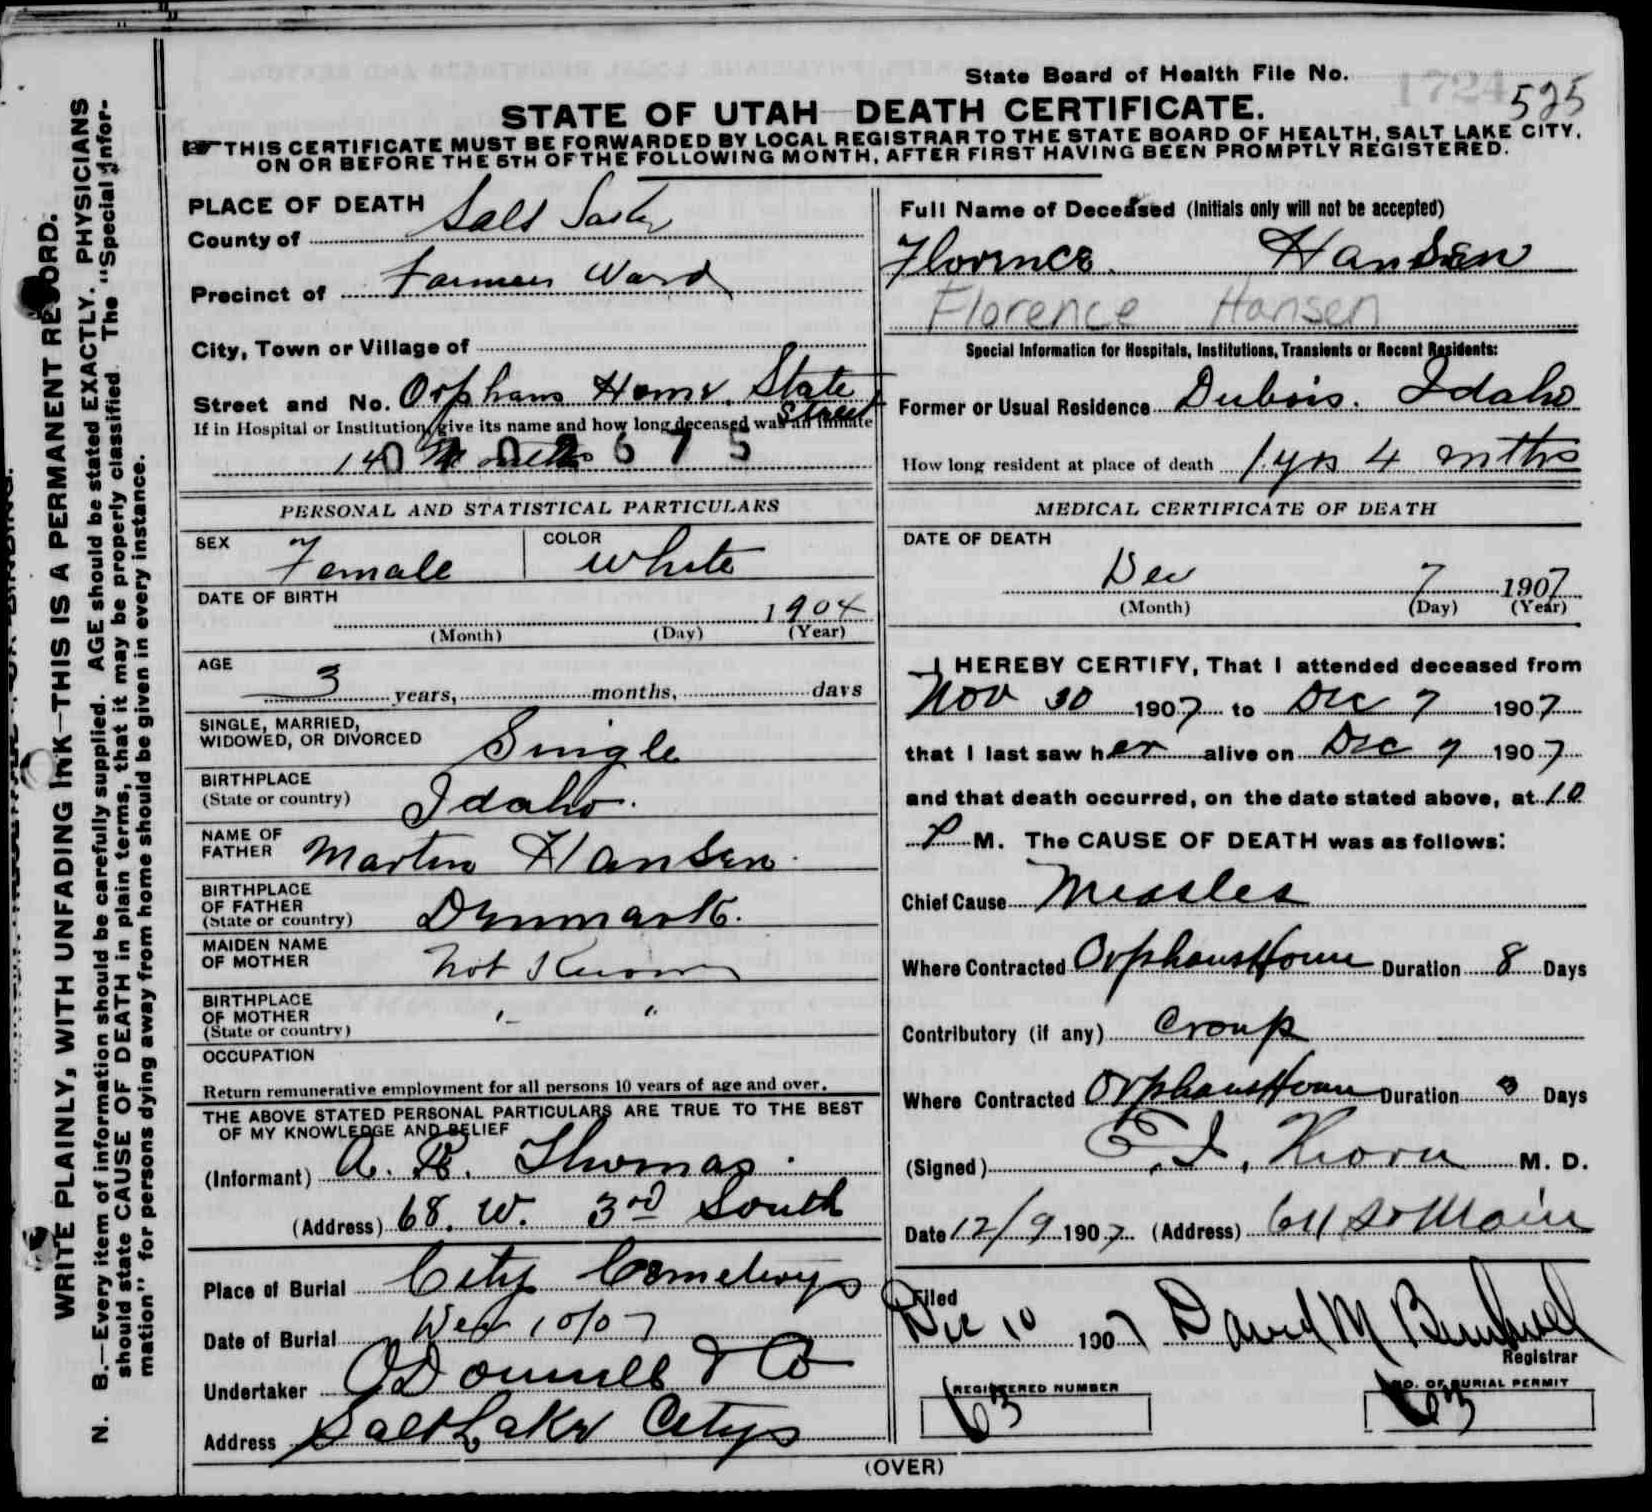 State Board of Health File No. 1724 525
STATE OF UTAH DEATH CERTIFICATE.
THIS CERTIFICATE MUST BE FORWARDED BY LOCAL REGISTRAR TO THE STATE BOARD OF HEALTH, SALT LAKE CITY,
ON OR BEFORE THE 5TH OF THE FOLLOWING MONTH, AFTER FIRST HAVING BEEN PROMPTLY REGISTERED.
WRITE PLAINLY, WITH UNFADING INK—THIS IS A PERMANENT RECORD.
N. B.—Every item of information should be carefully supplied. AGE should be stated EXACTLY. PHYSICIANS
should state CAUSE OF DEATH in plain terms, that it may be properly classified. The "Special Infor-
mation" for persons dying away from home should be given in every instance.
PLACE OF DEATH
County of Salt Lake
Precinct of Farmers Ward
City, Town or Village of
Street and No. Orphans Home. State Street
If in Hospital or Institution, give its name and how long deceased was an inmate
14 Months
0702675
PERSONAL AND STATISTICAL PARTICULARS
SEX Female COLOR White
DATE OF BIRTH
1904
(Month) (Day) (Year)
AGE
3 years, months, days
SINGLE, MARRIED,
WIDOWED, OR DIVORCED Single
BIRTHPLACE
(State or country) Idaho.
NAME OF
FATHER Martin Hansen.
BIRTHPLACE
OF FATHER
(State or country) Denmark.
MAIDEN NAME
OF MOTHER Not Known
BIRTHPLACE
OF MOTHER " "
(State or country)
OCCUPATION
Return remunerative employment for all persons 10 years of age and over.
THE ABOVE STATED PERSONAL PARTICULARS ARE TRUE TO THE BEST
OF MY KNOWLEDGE AND BELIEF
(Informant) A. B. Thomas.
(Address) 68. W. 3rd South
Place of Burial City Cemetery
Date of Burial Dec 10/07
Undertaker O'Donnell & Co
Address Salt Lake City
Full Name of Deceased (Initials only will not be accepted)
Florence. Hansen
Florence Hansen
Special Information for Hospitals, Institutions, Transients or Recent Residents:
Former or Usual Residence Dubois. Idaho
How long resident at place of death 1 yrs 4 mths
MEDICAL CERTIFICATE OF DEATH
DATE OF DEATH
Dec 7 1907
(Month) (Day) (Year)
I HEREBY CERTIFY, That I attended deceased from
Nov 30 1907 to Dec 7 1907
that I last saw her alive on Dec 7 1907
and that death occurred, on the date stated above, at 10
P M. The CAUSE OF DEATH was as follows:
Chief Cause Measles
Where Contracted Orphans Home Duration 8 Days
Contributory (if any) Croup
Where Contracted Orphans Home Duration 3 Days
(Signed) M. D.
Date 12/9 1907 (Address) So Main
Filed
Dec 10 1907 David M
Registrar
REGISTERED NUMBER
63
NO. OF BURIAL PERMIT
63
(OVER)